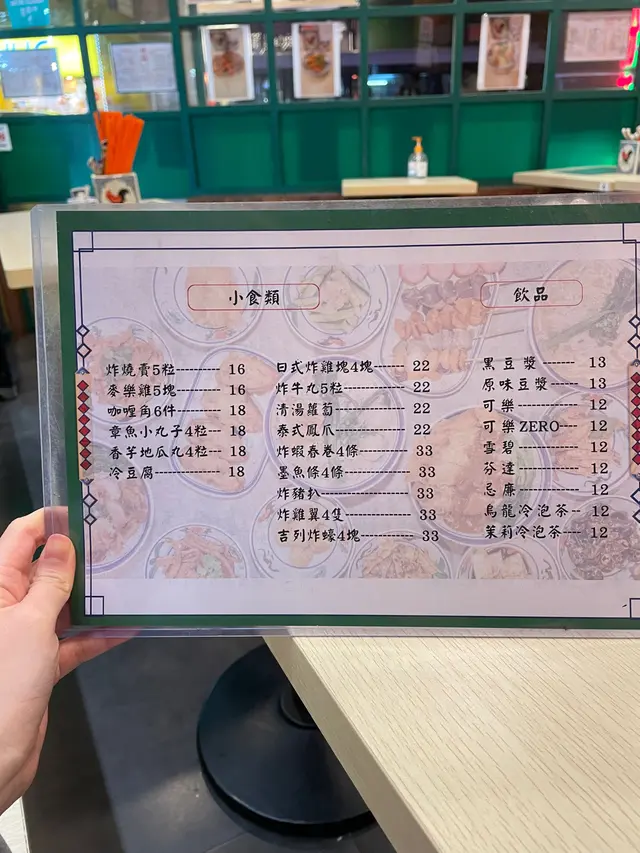 小食類
炸燒賣5粒---------- 16
麥樂雞5塊---------- 16
咖喱角6件---------- 18
章魚小丸子4粒--- 18
香芋地瓜丸4粒--- 18
冷豆腐-------------- 18
日式炸雞塊4塊------- 22
炸牛丸5粒------------- 22
清湯蘿蔔-------------- 22
泰式鳳爪-------------- 22
炸蝦春卷4條---------- 33
墨魚條4條------------- 33
炸豬扒----------------- 33
炸雞翼4隻------------- 33
吉列炸蠔4塊----------- 33
飲品
黑豆漿------- 13
原味豆漿----- 13
可樂---------- 12
可樂ZERO---- 12
雪碧---------- 12
芬達---------- 12
忌廉---------- 12
烏龍冷泡茶-- 12
茉莉冷泡茶--- 12